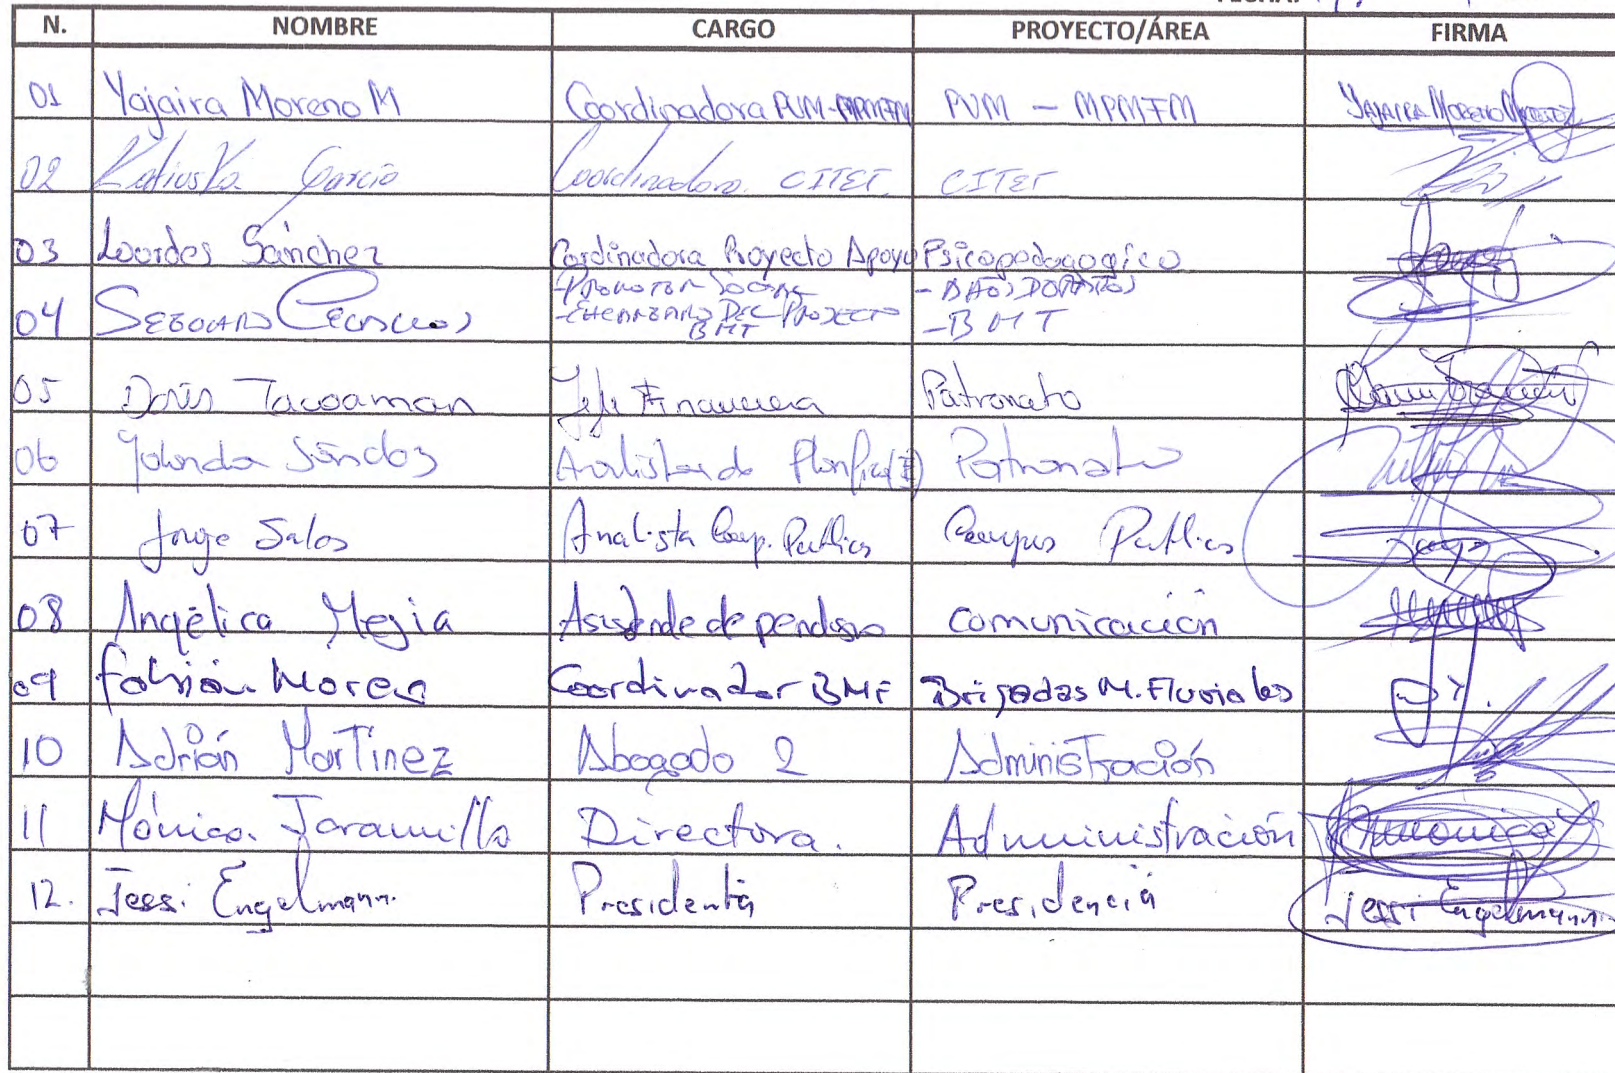 N. NOMBRE CARGO PROYECTO/ÁREA FIRMA
01 Yajaira Moreno M Coordinadora PVM-MPMTM PVM - MPMTM Yajaira Moreno
02 Katiuska García Coordinadora CITET CITET
03 Lourdes Sánchez Cordinadora Proyecto Apoyo Psicopedagogico
- Promotor Social
04 Segundo - Encargado Del Proyecto - BMT
BMT
05 Doris Tacoaman Jefe Financiera Patronato
06 Yolanda Analista de Patronato
07 Jorge Salas Analista Comp. Publicas Publicas
08 Angélica Mejia Asistente de comunicación
09 Fabián Coordinador BMF Brigadas M. Fluviales
10 Adrián Martínez Abogado 2 Administración
11 Mónica Jaramillo Directora. Administración Monica
12. Jessi Engelmann. Presidenta Presidencia Jessi Engelmann